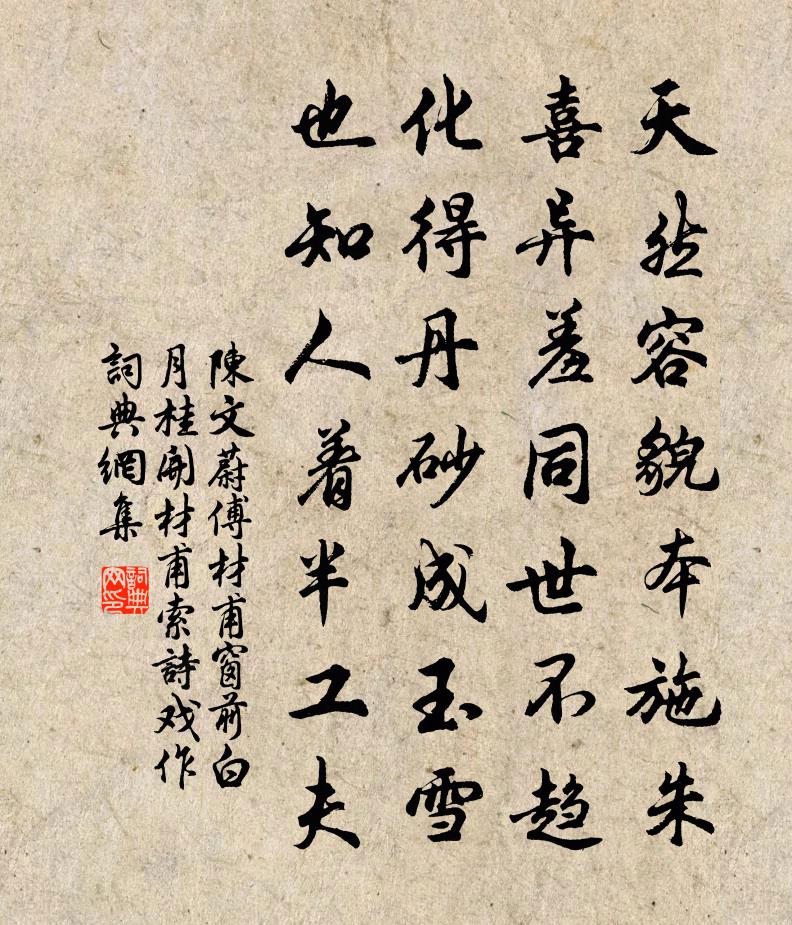 天然容貌本施朱
喜异羞同世不趋
化得丹砂成玉雪
也知人着半工夫
陳文蔚傅材甫窗前白
月桂開材甫索詩戏作
詞典網集
詞典
网印